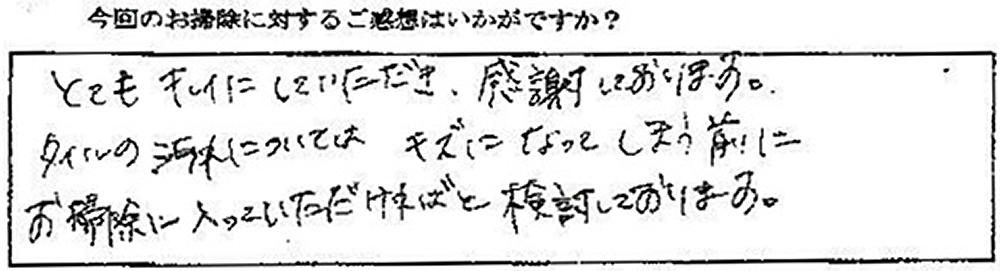 今回のお掃除に対するご感想はいかがですか？
とてもキレイにしていただき、感謝しております。
タイルの汚れについては キズになってしまう前に
お掃除に入っていただければと検討しております。